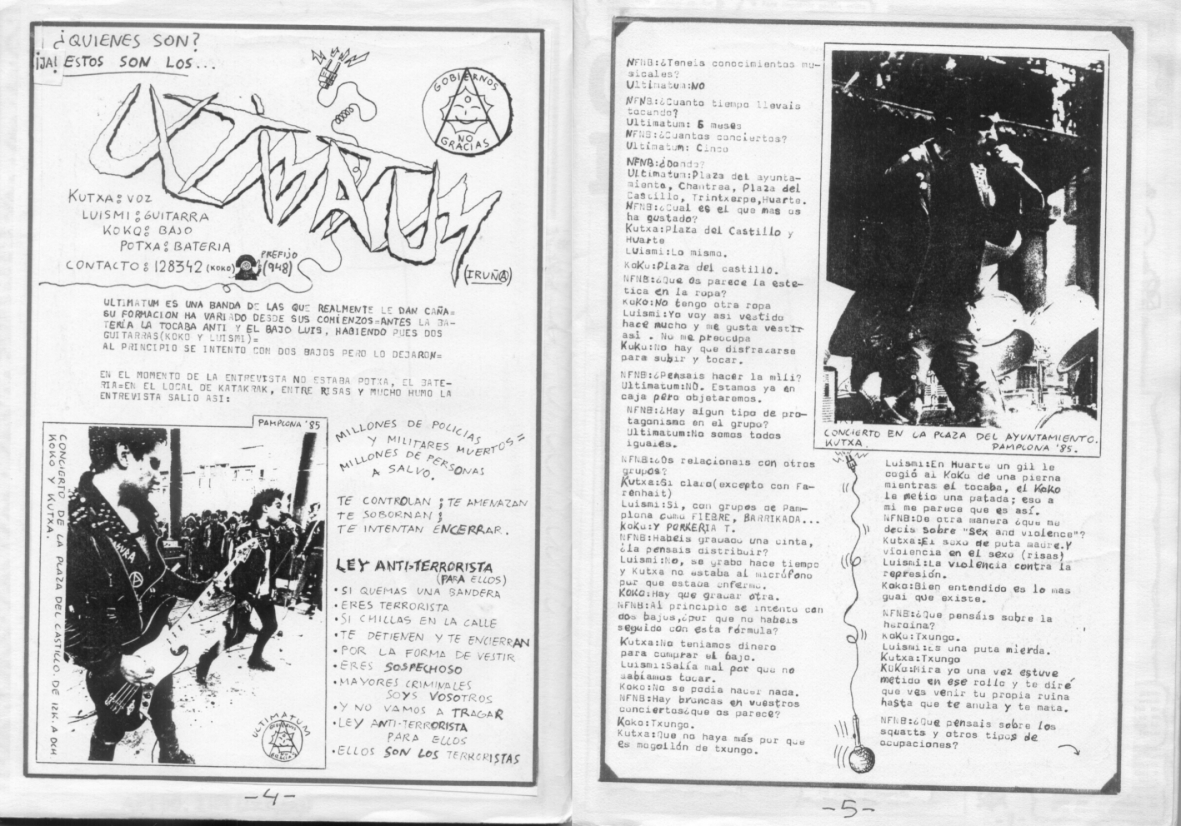 ¿QUIENES SON?
¡JA! ESTOS SON LOS...
GOBIERNOS
NO
GRACIAS
ULTIMATUM
KUTXA: VOZ
LUISMI: GUITARRA
KOKO: BAJO
POTXA: BATERIA
CONTACTO: 128342 (KOKO) PREFIJO (948)
(IRUÑA)
ULTIMATUM ES UNA BANDA DE LAS QUE REALMENTE LE DAN CAÑA=
SU FORMACION HA VARIADO DESDE SUS COMIENZOS=ANTES LA BA-
TERÍA LA TOCABA ANTI Y EL BAJO LUIS, HABIENDO PUES DOS
GUITARRAS(KOKO Y LUISMI)=
AL PRINCIPIO SE INTENTO CON DOS BAJOS PERO LO DEJARON=
EN EL MOMENTO DE LA ENTREVISTA NO ESTABA POTXA, EL BATE-
RIA=EN EL LOCAL DE KATAKRAK, ENTRE RISAS Y MUCHO HUMO LA
ENTREVISTA SALIO ASI:
PAMPLONA '85
CONCIERTO DE LA PLAZA DEL CASTILLO. DE IZK. A DCH
KOKO Y KUTXA.
ULTIMATUM
MILLONES DE POLICIAS
Y MILITARES MUERTOS=
MILLONES DE PERSONAS
A SALVO.
TE CONTROLAN ; TE AMENAZAN
TE SOBORNAN ;
TE INTENTAN ENCERRAR.
LEY ANTI-TERRORISTA
(PARA ELLOS)
• SI QUEMAS UNA BANDERA
• ERES TERRORISTA
• SI CHILLAS EN LA CALLE
• TE DETIENEN Y TE ENCIERRAN
• POR LA FORMA DE VESTIR
• ERES SOSPECHOSO
• MAYORES CRIMINALES
SOYS VOSOTROS
• Y NO VAMOS A TRAGAR
• LEY ANTI-TERRORISTA
PARA ELLOS
• ELLOS SON LOS TERRORISTAS
-4-
NFNB:¿Teneis conocimientos mu-
sicales?
Ultimatum:NO
NFNB:¿Cuanto tiempo llevais
tocando?
Ultimatum: 6 meses
NFNB:¿Cuantos conciertos?
Ultimatum: Cinco
NFNB:¿Donde?
Ultimatum:Plaza del ayunta-
miento, Chantrea, Plaza del
Castillo, Trintxerpe,Huarte.
NFNB:¿Cual es el que mas os
ha gustado?
Kutxa:Plaza del Castillo y
Huarte
Luismi:Lo mismo.
KoKu:Plaza del castillo.
NFNB:¿Que os parece la este-
tica en la ropa?
KoKo:No tengo otra ropa
Luismi:Yo voy asi vestido
hace mucho y me gusta vestir
asi . No me preocupa
KoKu:No hay que disfrazarse
para subir y tocar.
NFNB:¿Pensais hacer la mili?
Ultimatum:NO. Estamos ya en
caja pero objetaremos.
NFNB:¿Hay algun tipo de pro-
tagonismo en el grupo?
Ultimatum:No somos todos
iguales.
NFNB:¿Os relacionais con otros
grupos?
Kutxa:Si claro(excepto con Fa-
renhait)
Luismi:Si, con grupos de Pam-
plona como FIEBRE, BARRIKADA...
KoKu:Y PORKERIA T.
NFNB:Habeis grabado una cinta,
¿la pensais distribuir?
Luismi:No, se grabo hace tiempo
y Kutxa no estaba al micrófono
por que estaba enfermo.
KoKo:Hay que grabar otra.
NFNB:Al principio se intento con
dos bajos,¿por que no habeis
seguido con esta fórmula?
Kutxa:No teniamos dinero
para comprar el bajo.
Luismi:Salía mal por que no
sabíamos tocar.
Koko:No se podia hacer nada.
NFNB:Hay broncas en vuestros
conciertos¿que os parece?
Koko:Txungo.
Kutxa:Que no haya más por que
es mogollón de txungo.
CONCIERTO EN LA PLAZA DEL AYUNTAMIENTO.
KUTXA. PAMPLONA '85.
Luismi:En Huarte un gil le
cogió al KoKu de una pierna
mientras el tocaba, el KoKo
le metio una patada; eso a
mi me parece que es así.
NFNB:De otra manera ¿que me
decís sobre "Sex and violence"?
Kutxa:El sexo de puta madre.Y
violencia en el sexo (risas)
Luismi:La violencia contra la
represión.
Koko:Bien entendido es lo mas
guai que existe.
NFNB:¿Que pensáis sobre la
heroina?
KoKu:Txungo.
Luismi:Es una puta mierda.
Kutxa:Txungo
KoKo:Mira yo una vez estuve
metido en ese rollo y te diré
que ves venir tu propia ruina
hasta que te anula y te mata.
NFNB:¿Que pensais sobre los
squatts y otros tipos de
ocupaciones?
-5-